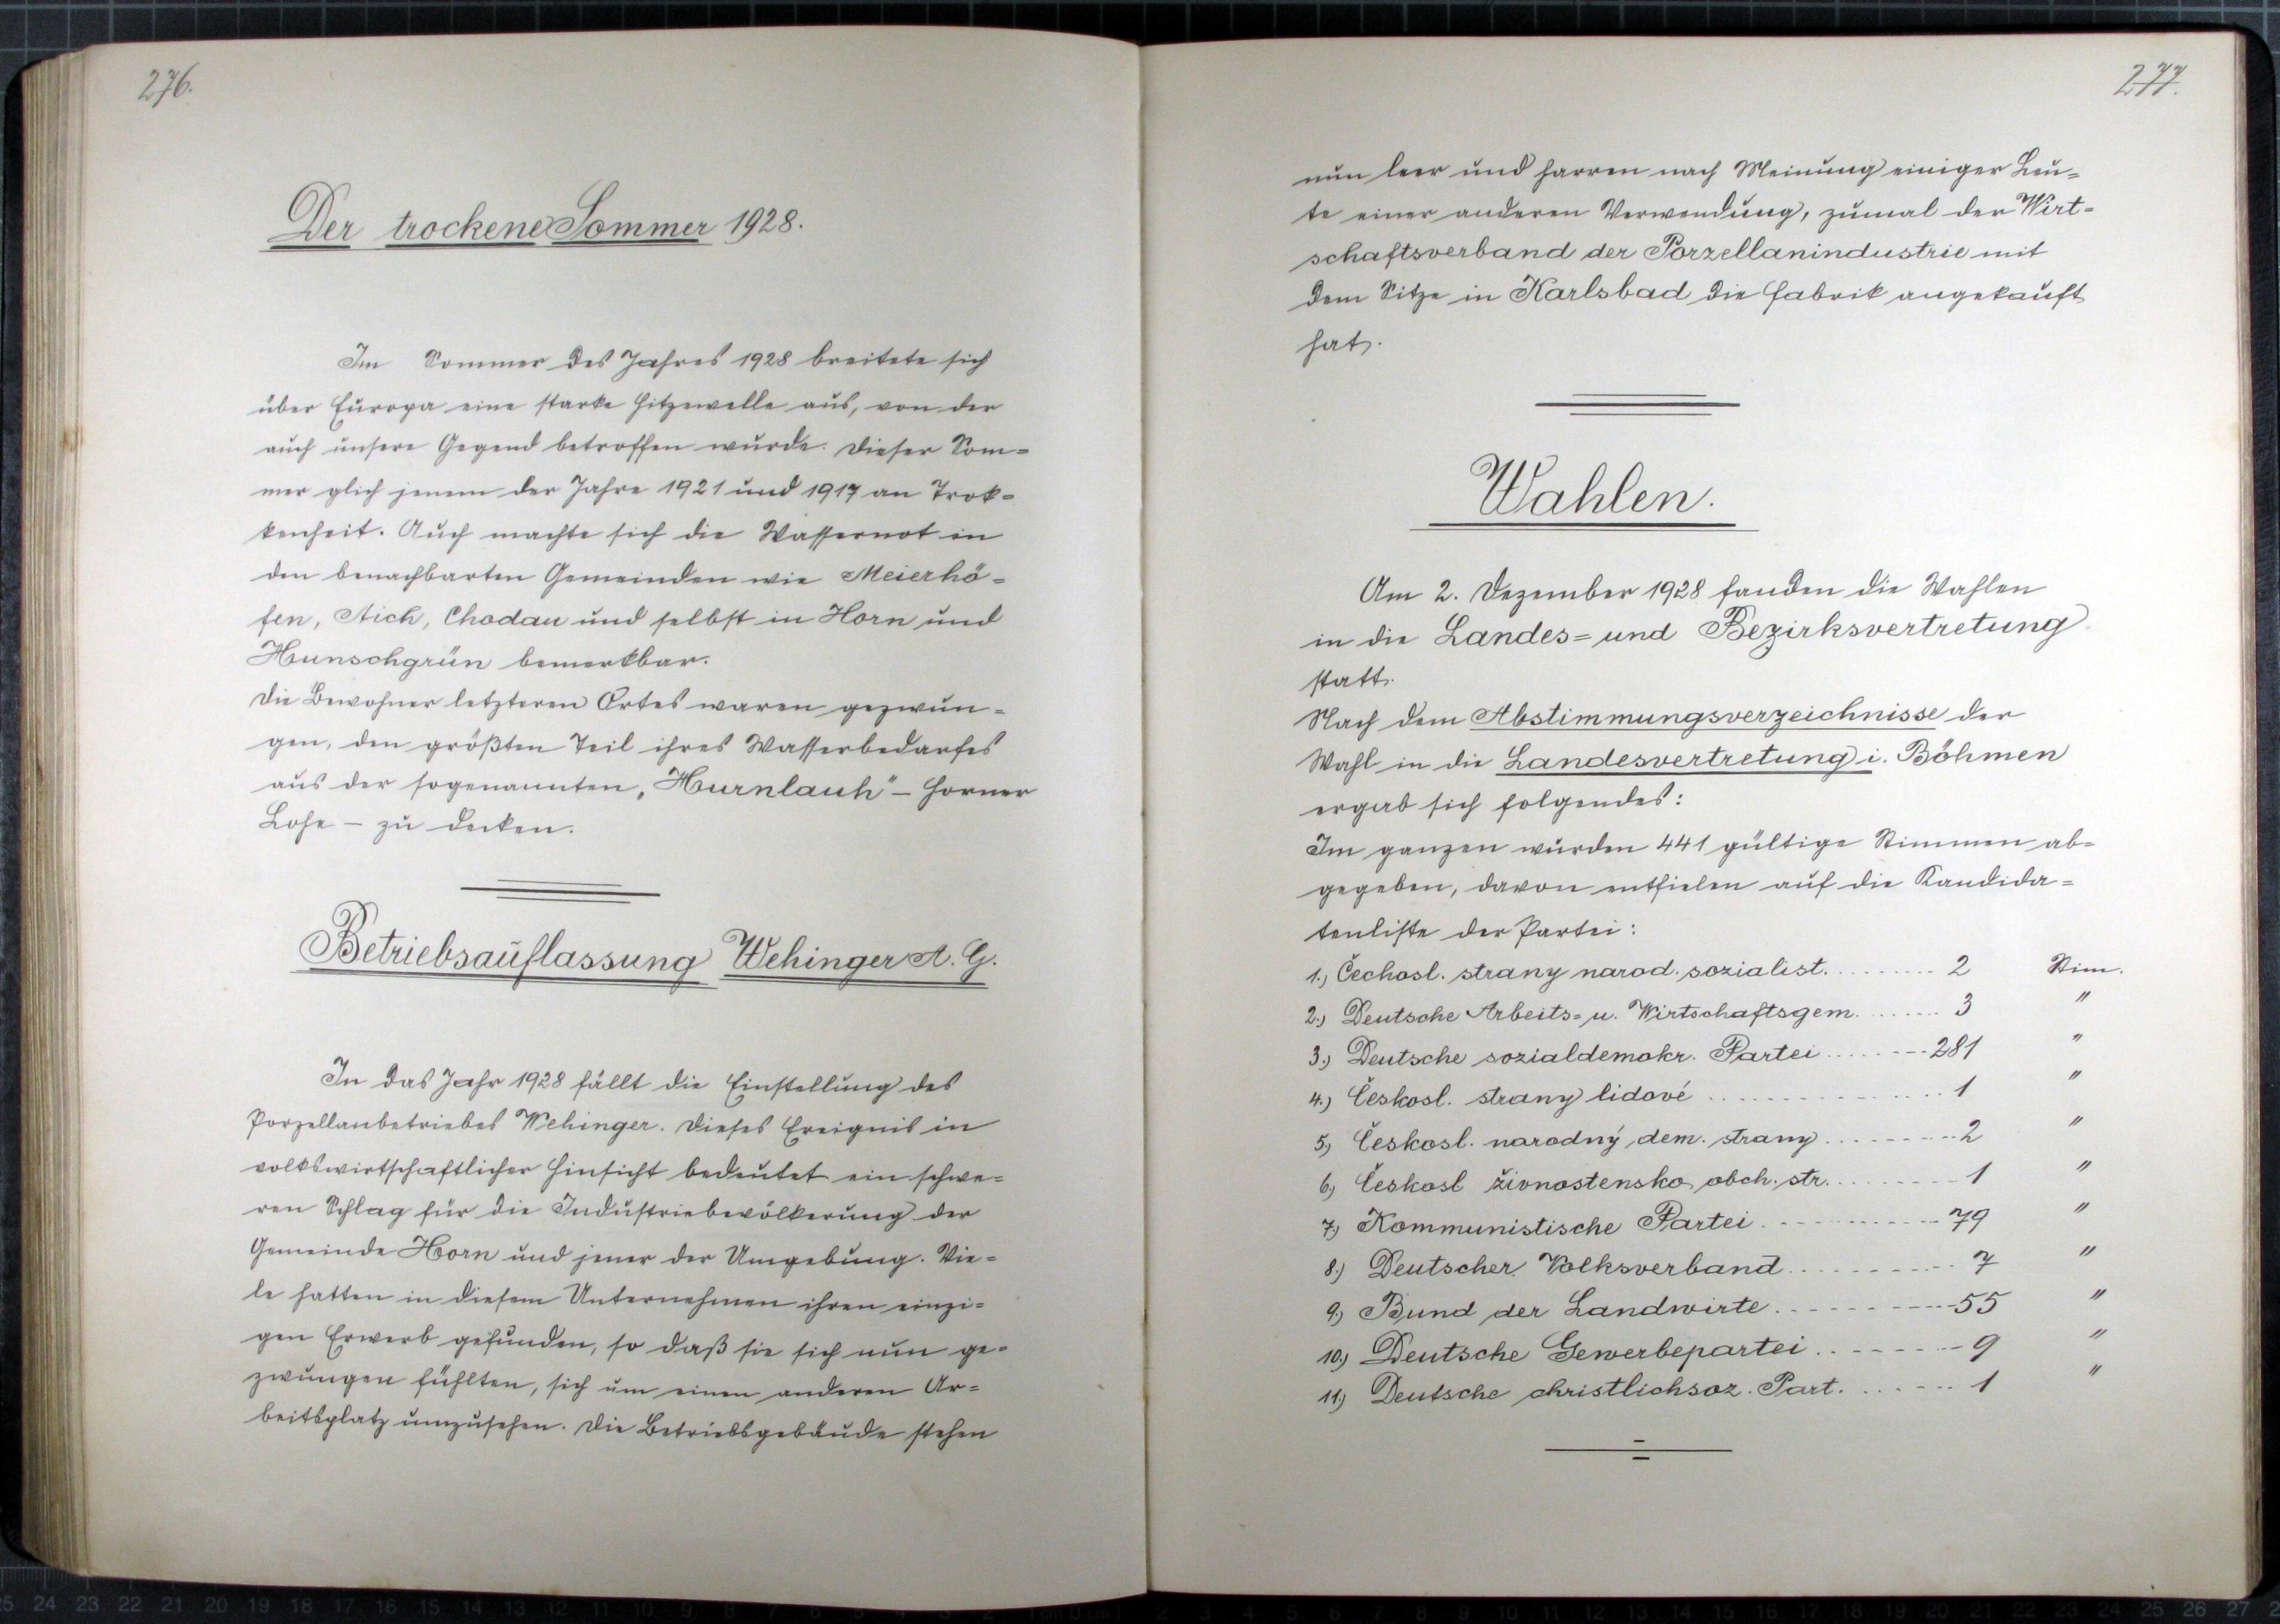 276.
Der trockene Sommer 1928.
Im Sommer des Jahres 1928 breitete sich
über Europa eine starke Hitzewelle aus, von der
auch unsere Gegend betroffen wurde. Dieser Som=
mer glich jenem der Jahre 1921 und 1917 an Trok=
kenheit. Auch machte sich die Wassernot in
den benachbarten Gemeinden wie Meierhö=
fen, Aich, Chodau und selbst in Horn und
Hunschgrün bemerkbar.
Die Bewohner letzteren Ortes waren gezwun=
gen, den größten Teil ihres Wasserbedarfes
aus der sogenannten „Hurnlauh" – Horner
Lohe – zu decken.
Betriebsauflassung Wehinger A. G.
In das Jahr 1928 fällt die Einstellung des
Porzellanbetriebes Wehinger. Dieses Ereignis in
volkswirtschaftlicher Hinsicht bedeutet ein schwe=
ren Schlag für die Industriebevölkerung der
Gemeinde Horn und jener der Umgebung. Vie=
le hatten in diesem Unternehmen ihren einzi=
gen Erwerb gefunden, so daß sie sich nun ge=
zwungen fühlten, sich um einen anderen Ar=
beitsplatz umzusehen. Die Betriebsgebäude stehen
277.
nun leer und harren nach Meinung einiger Leu=
te einer anderen Verwendung, zumal der Wirt=
schaftsverband der Porzellanindustrie mit
dem Sitze in Karlsbad die Fabrik angekauft
hat.
Wahlen.
Am 2. Dezember 1928 fanden die Wahlen
in die Landes= und Bezirksvertretung
statt.
Nach dem Abstimmungsverzeichnisse der
Wahl in die Landesvertretung i. Böhmen
ergab sich folgendes:
Im ganzen wurden 441 gültige Stimmen ab=
gegeben, davon entfielen auf die Kandida=
tenliste der Partei:
1.) Čechosl. strany narod. sozialist. ........ 2 Stim.
2.) Deutsche Arbeits= u. Wirtschaftsgem. ....... 3 "
3.) Deutsche sozialdemokr. Partei ........ 281 "
4.) Českosl. strany lidové ............... 1 "
5.) Českosl. narodný dem. strany ......... 2 "
6.) Českosl živnostensko obch. str. ........ 1 "
7.) Kommunistische Partei ............ 79 "
8.) Deutscher Volksverband .......... 7 "
9.) Bund der Landwirte .......... 55 "
10.) Deutsche Gewerbepartei ........ 9 "
11.) Deutsche christlichsoz. Part. ....... 1 "